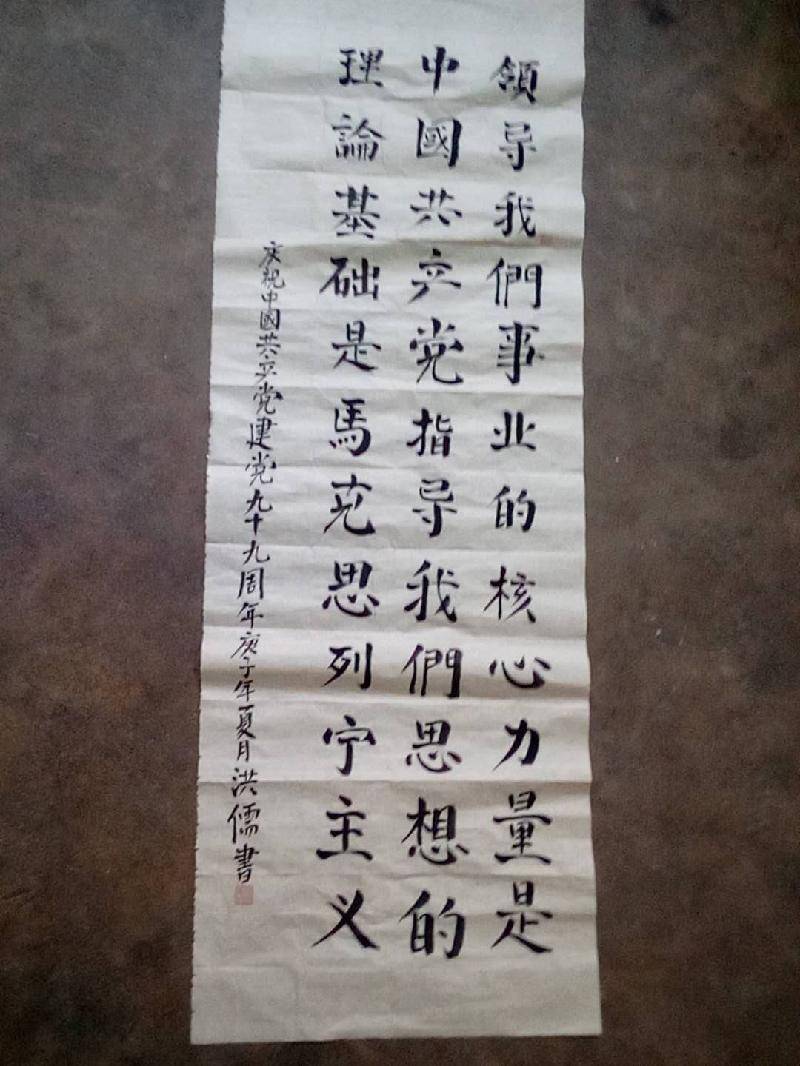 領导我們事业的核心力量是
中國共产党指导我們思想的
理論基础是馬克思列宁主义
庆祝中國共产党建党九十九周年庚子年夏月洪儒書